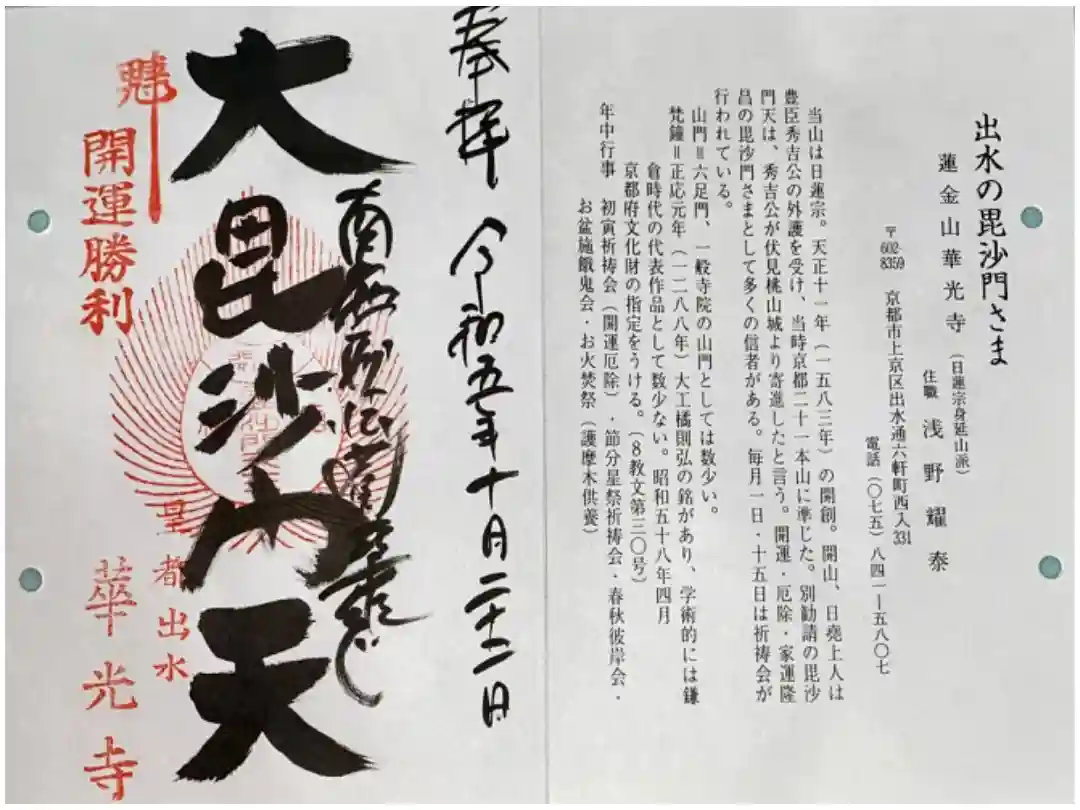 出水の毘沙門さま
蓮金山華光寺(日蓮宗身延山派)
住職 浅野耀泰
〒602-8359 京都市上京区出水通六軒町西入331
電話(〇七五)八四一―五八〇七
当山は日蓮宗。天正十一年(一五八三年)の開創。開山、日堯上人は
豊臣秀吉公の外護を受け、当時京都二十一本山に準じた。別勧請の毘沙
門天は、秀吉公が伏見桃山城より寄進したと言う。開運・厄除・家運隆
昌の毘沙門さまとして多くの信者がある。毎月一日・十五日は祈祷会が
行われている。
山門=六足門、一般寺院の山門としては数少い。
梵鐘=正応元年(一二八八年)大工橘則弘の銘があり、学術的には鎌
倉時代の代表作品として数少ない。昭和五十八年四月
京都府文化財の指定をうける。(8教文第三〇号)
年中行事 初寅祈祷会(開運厄除)・節分星祭祈祷会・春秋彼岸会・
お盆施餓鬼会・お火焚祭(護摩木供養)
奉拝 令和五年十月二十二日
大毘沙門天
魁
開運勝利
京都出水
華光寺